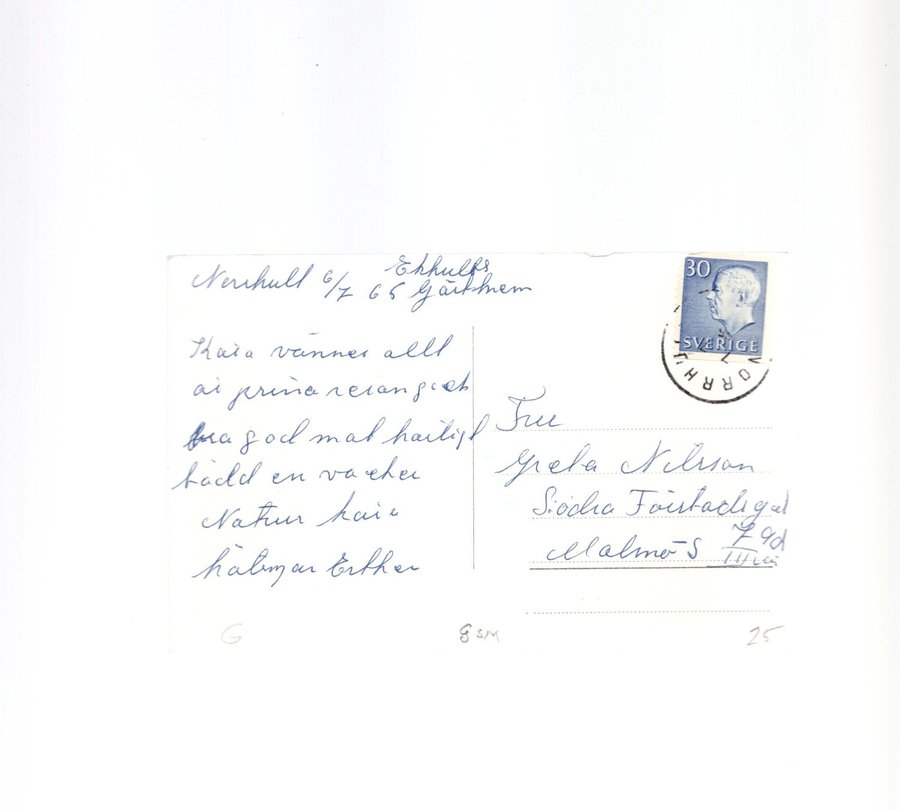 Norrhult 6/7 65 Ekhults
Gästhem
Kära vänner allt
är prima resan gick
bra god mat härligt
bädd en vacker
Natur kära
hälsn­gar Esther
30
SVERIGE
NORRHU
Fru
Greta Nilsson
Södra Förstadsgat
79d
Malmö S
G
GSM
25